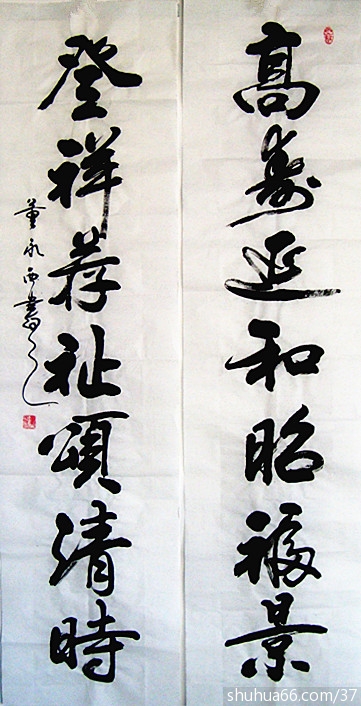 高壽延和昭福景
登祥荐祉頌清時
董永西書
shuhua66.com/37